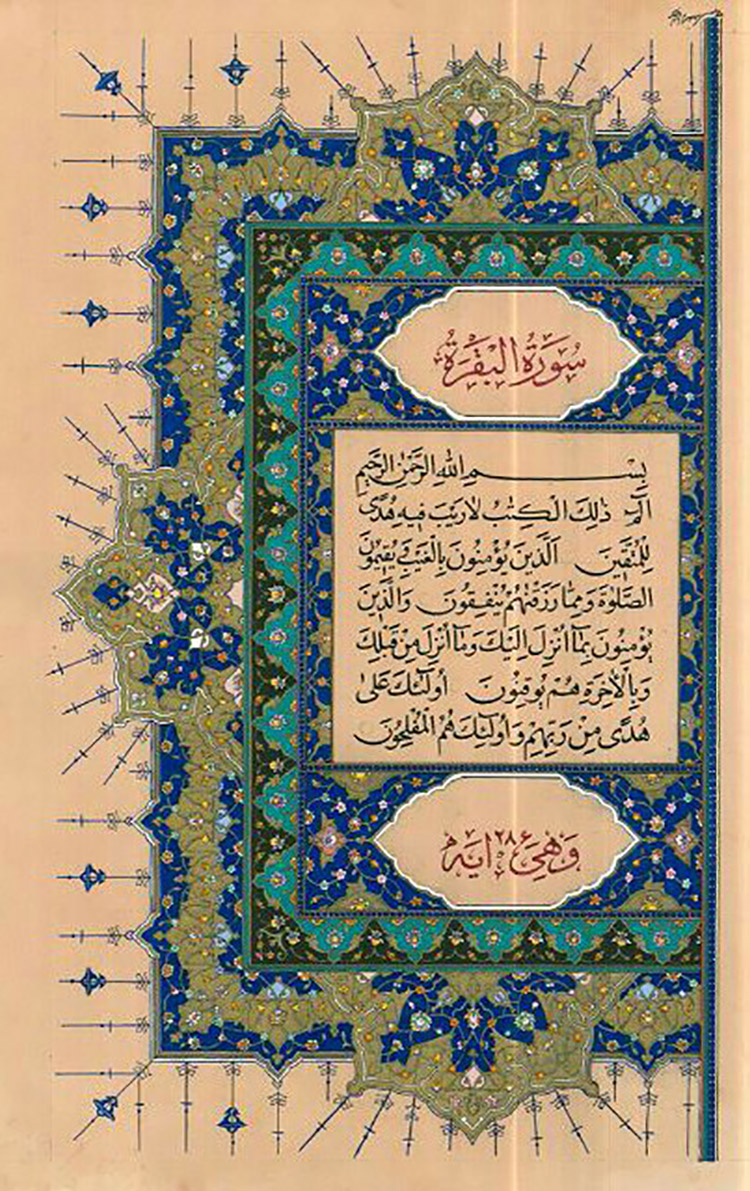 سُورَةُ الْبَقَرَةُ
بِسْمِ اللهِ الرَّحْمٰنِ الرَّحِيمِ
الٓمٓ ذٰلِكَ الْكِتٰبُ لَا رَيْبَ فِيهِ هُدًى
لِلْمُتَّقِينَ الَّذِينَ يُؤْمِنُونَ بِالْغَيْبِ وَيُقِيمُونَ
الصَّلٰوةَ وَمِمَّا رَزَقْنٰهُمْ يُنْفِقُونَ وَالَّذِينَ
يُؤْمِنُونَ بِمَآ اُنْزِلَ اِلَيْكَ وَمَآ اُنْزِلَ مِنْ قَبْلِكَ
وَبِالْاٰخِرَةِ هُمْ يُوقِنُونَ اُولٰٓئِكَ عَلٰى
هُدًى مِنْ رَبِّهِمْ وَاُولٰٓئِكَ هُمُ الْمُفْلِحُونَ
وَهِيَ ٢٨٦ ايَه